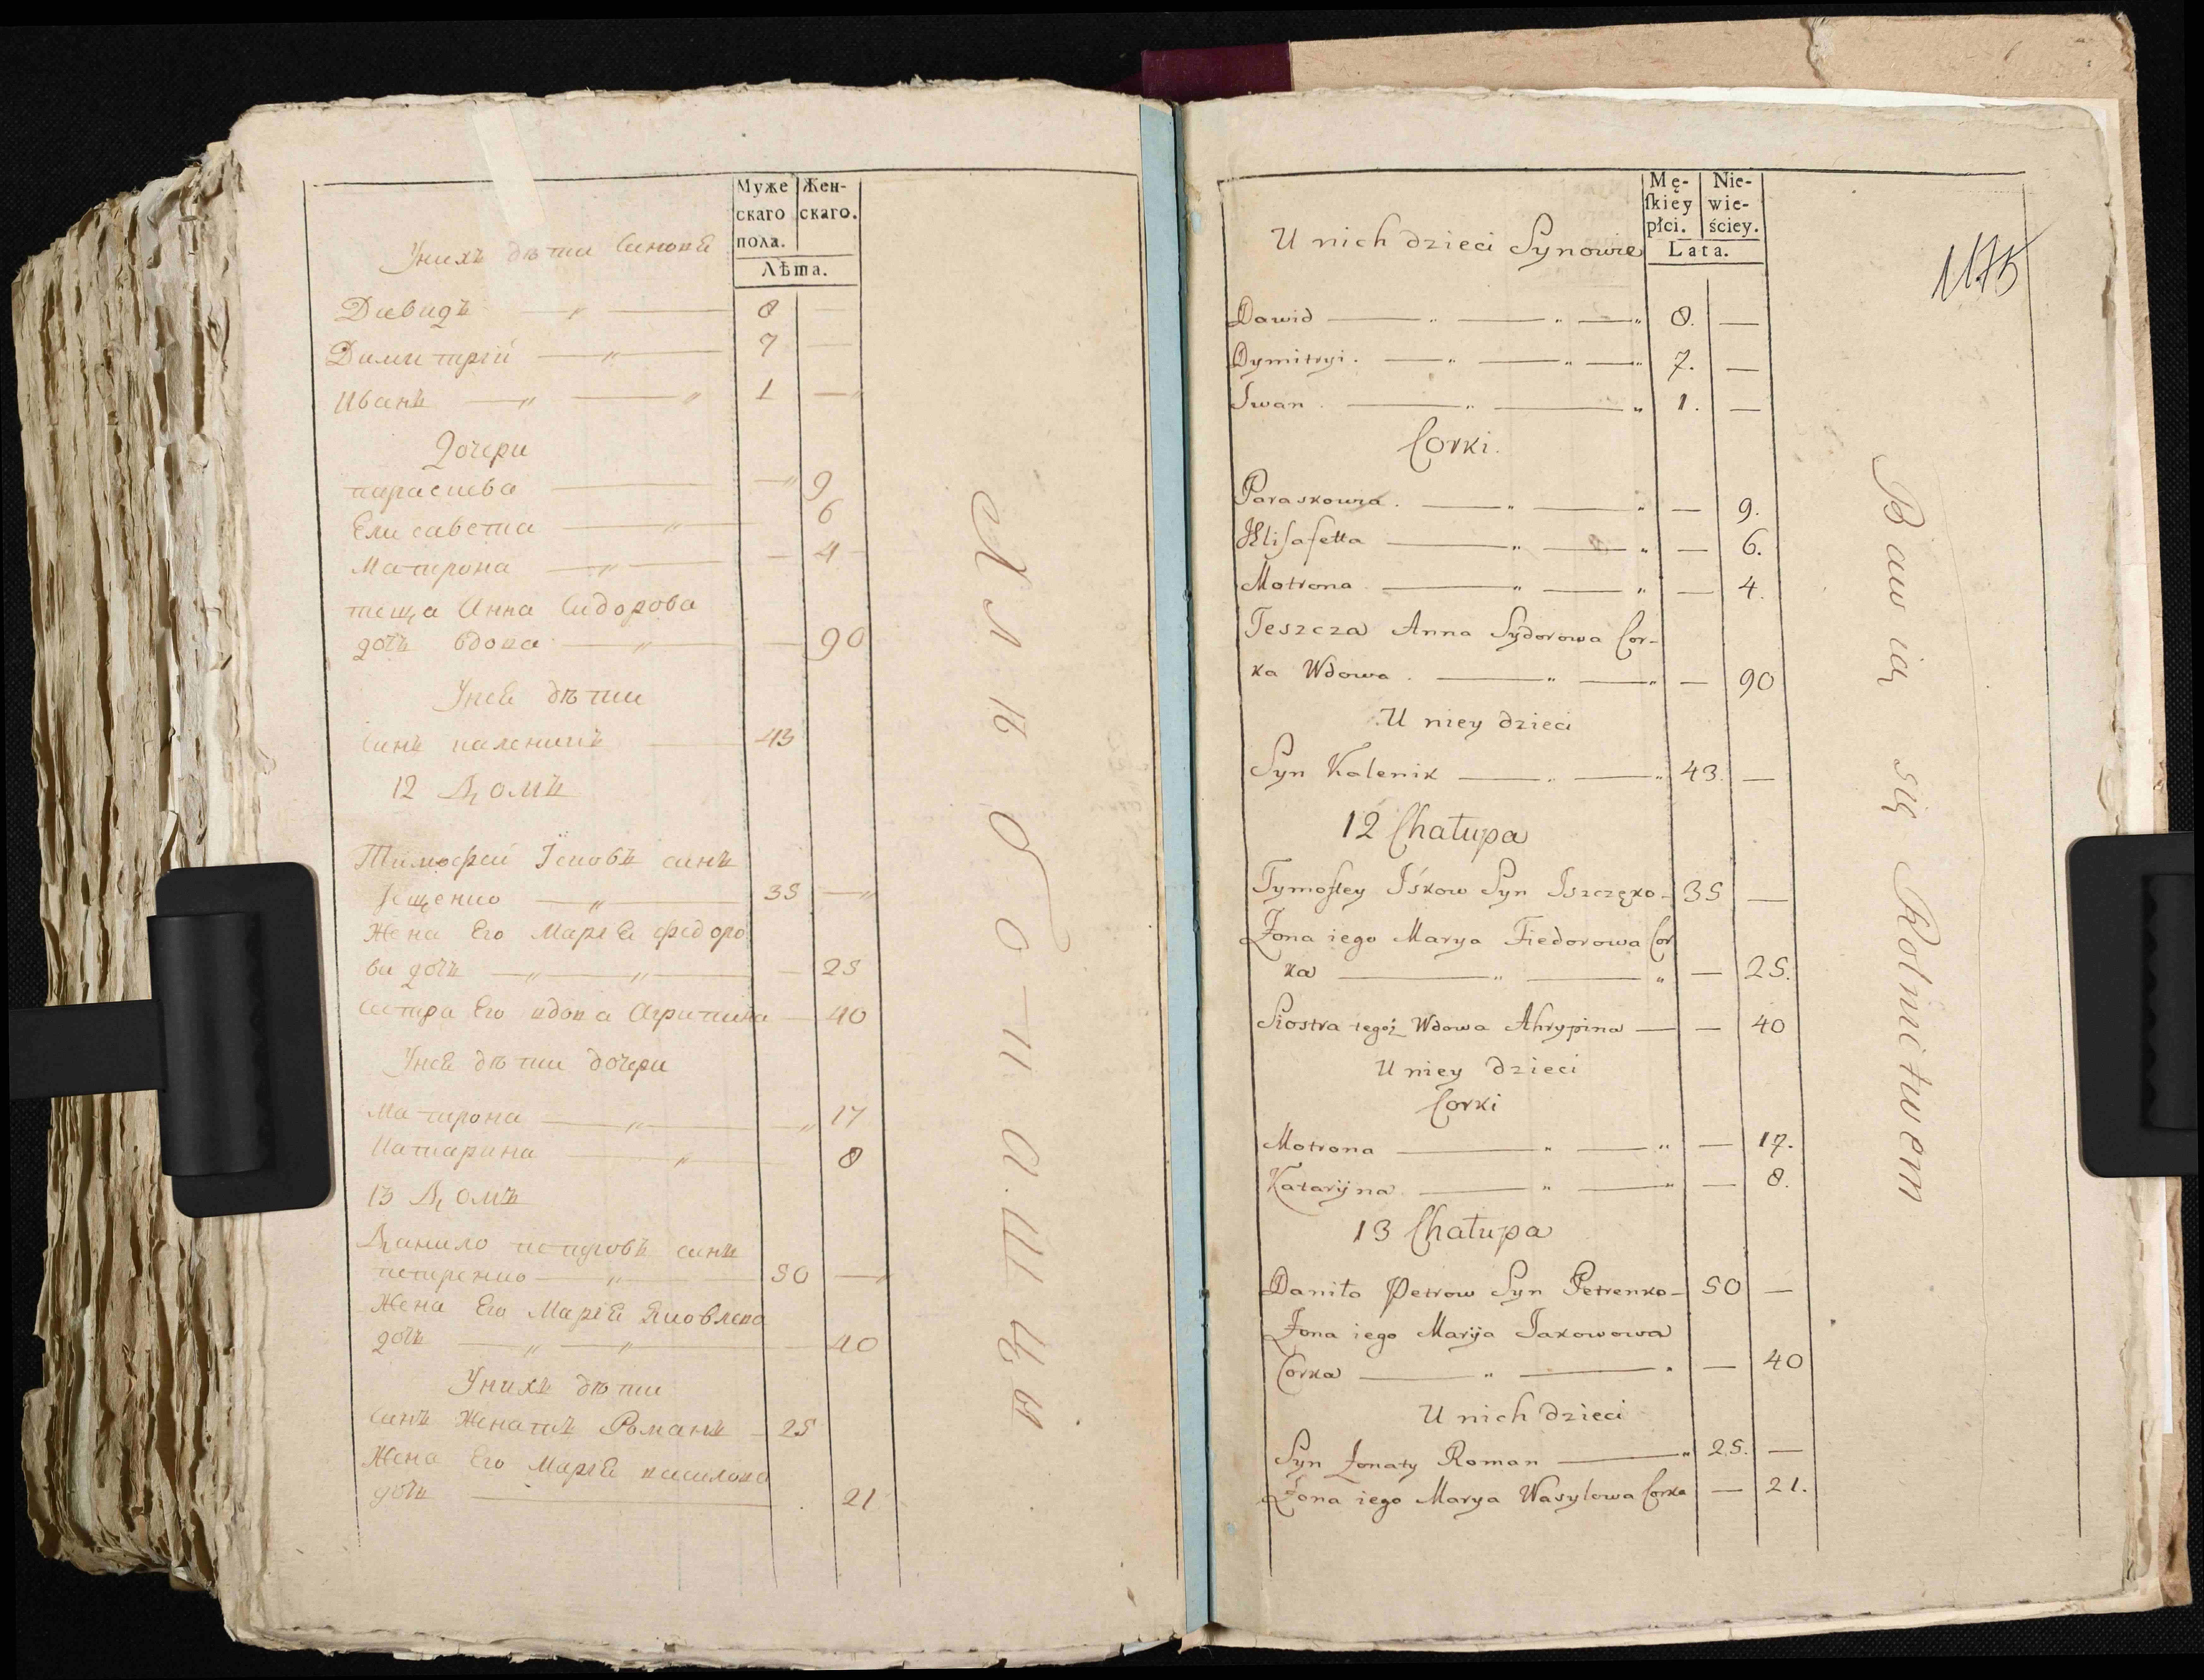 Муже Жен-
скаго скаго.
пола.
Лѣта.
Унихъ дѣти Синовѣ
Давидъ 8 —
Димитрїй 7 —
Иванъ 1 —
Дочери
параскева — 9
Елисавета 6
Матрона — 4
теща Анна Сидорова
дочь вдова — 90
Унеѣ дѣти
Синъ каленикъ 43
12 Домъ
Тимофей Їсковъ синъ
Їщенко 35 —
Жена Его Марїѣ федоро
ва дочъ — 25
Сестра Его вдова Агрипина — 40
Унеѣ дѣти дочери
Матрона — 17
Катарина 8
13 Домъ
Данило петровъ синъ
петренко 50 —
Жена Его Марїѣ Яковлева
дочъ — 40
Унихъ дѣти
Синъ Женатъ Романъ 25
Жена Его Марїѣ василова
дочъ 21
Mę- Nie-
ſkiey wie-
płci. ściey.
Lata.
1175
U nich dzieci Synowie
Dawid 8. —
Dymitryi. 7. —
Iwan. 1. —
Corki.
Paraskowia. — 9.
Elisafetta — 6.
Motrona — 4.
Teszcza Anna Sydorowa Cor-
ka Wdowa. — 90
U niey dzieci
Syn Kalenik 43. —
12 Chałupa
Tymofiey Iśkow Syn Iszczęko- 35 —
Żona iego Marya Fiedorowa Cor
ka — 25.
Siostra tegoż Wdowa Ahrypina — — 40
U niey dzieci
Corki
Motrona — 17.
Katarijna — 8.
13 Chałupa
Daniło Petrow Syn Petrenko- 50 —
Żona iego Marija Jakowowa
Corka — 40
U nich dzieci
Syn Żonaty Roman 25. —
Żona iego Marya Wasylowa Corka — 21.
Bawią się Rolnitwem